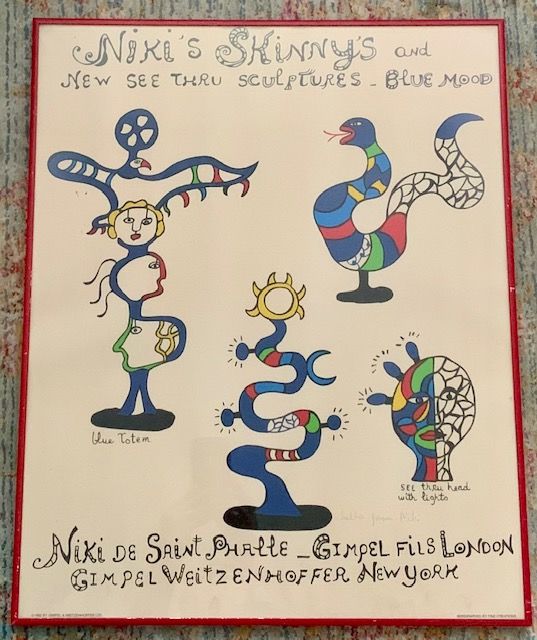 NIKI'S SKINNYS and
NEW SEE THRU SCULPTURES - BLUE MOOD
blue Totem
SEE thru head
with lights
NIKI DE SAINT PHALLE - GIMPEL FILS LONDON
GIMPEL WEITZENHOFFER NEW YORK